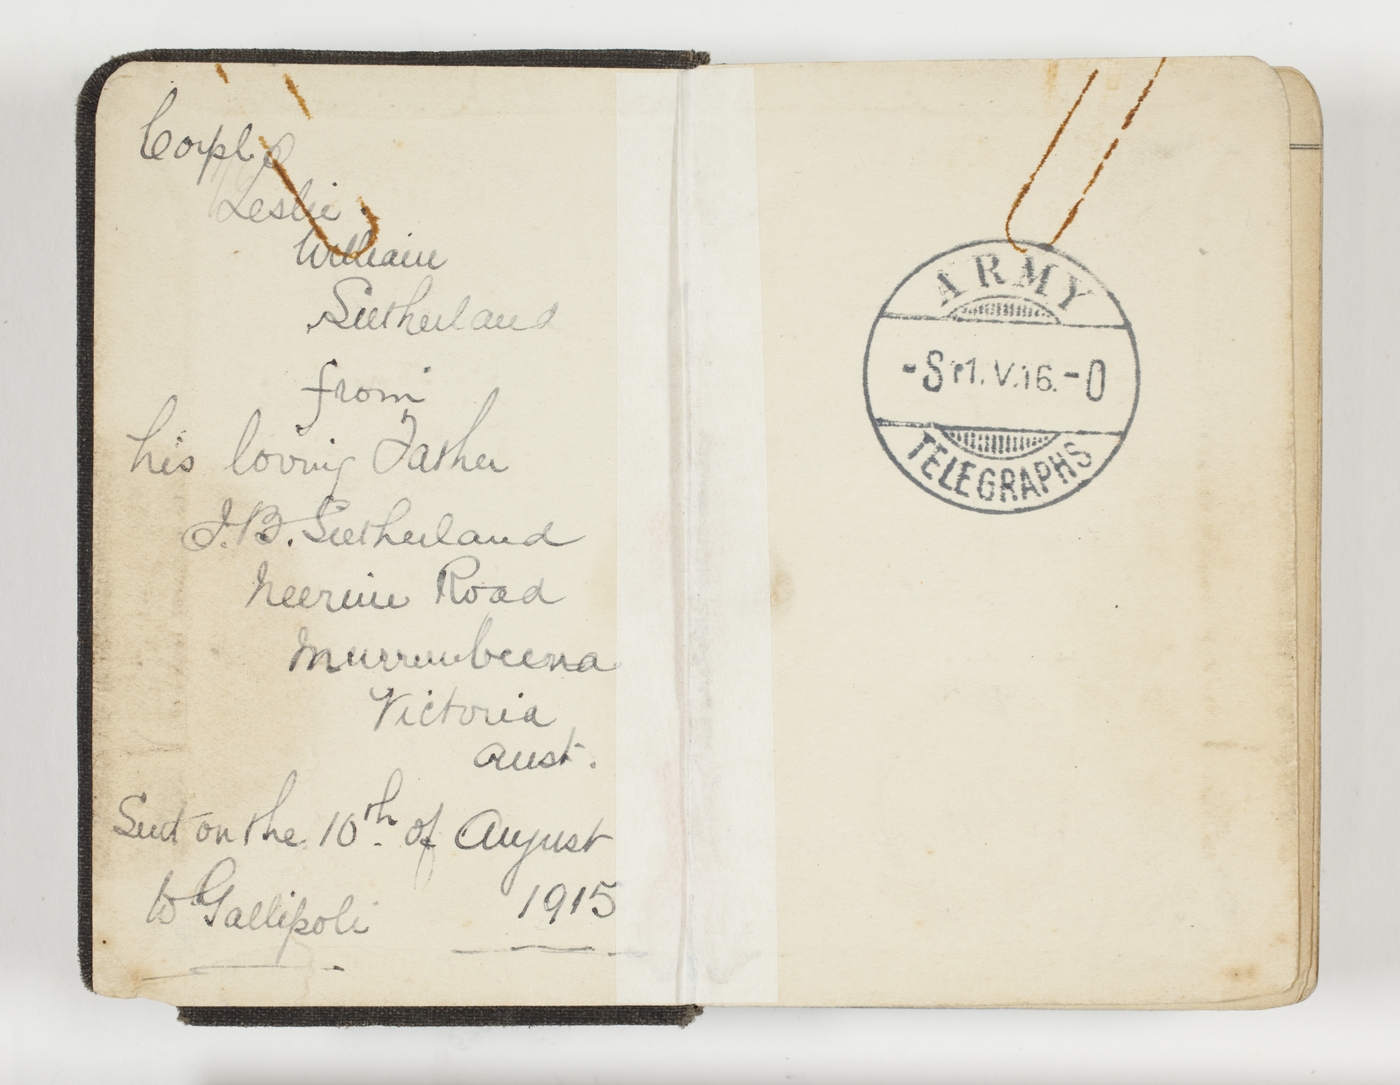 Corpl.
Leslie.
William
Sutherland
from
his loving Father
J.B. Sutherland
Neerim Road
Murrumbeena
Victoria
Aust.
Sent on the 10th of August
to Gallipoli 1915
ARMY
-S 1.V.16.-O
TELEGRAPHS